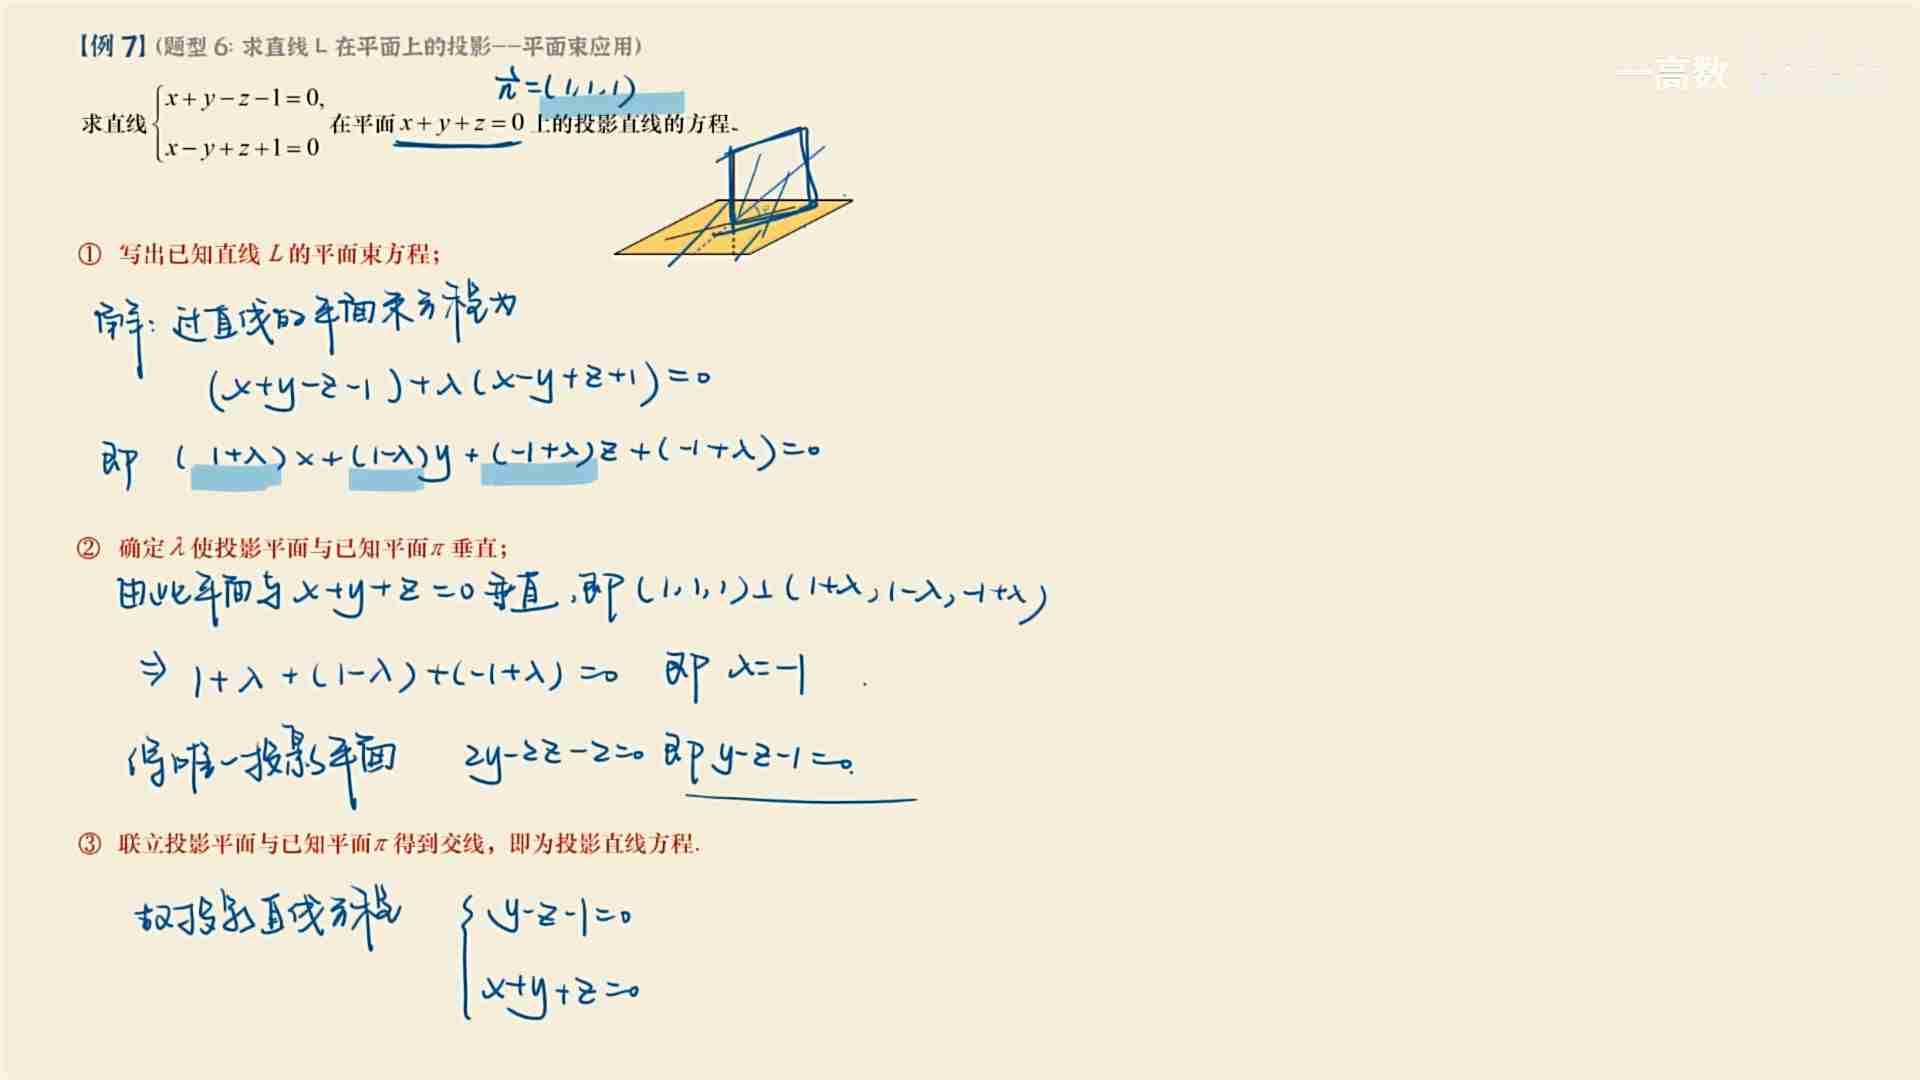 【例 7】(题型 6: 求直线 L 在平面上的投影--平面束应用)
一高数
n⃗=(1,1,1)
求直线{x+y−z−1=0, x−y+z+1=0 在平面 x+y+z=0 上的投影直线的方程.
① 写出已知直线 L 的平面束方程;
解: 过直线的平面束方程为
(x+y−z−1)+λ(x−y+z+1)=0
即 (1+λ)x+(1−λ)y+(−1+λ)z+(−1+λ)=0
② 确定 λ 使投影平面与已知平面π 垂直;
由此平面与 x+y+z=0 垂直,即(1,1,1)⊥(1+λ,1−λ,−1+λ)
⇒ 1+λ+(1−λ)+(−1+λ)=0 即 λ=−1
得唯一投影平面 2y−2z−2=0 即 y−z−1=0.
③ 联立投影平面与已知平面π 得到交线，即为投影直线方程.
故投影直线方程 { y−z−1=0
x+y+z=0